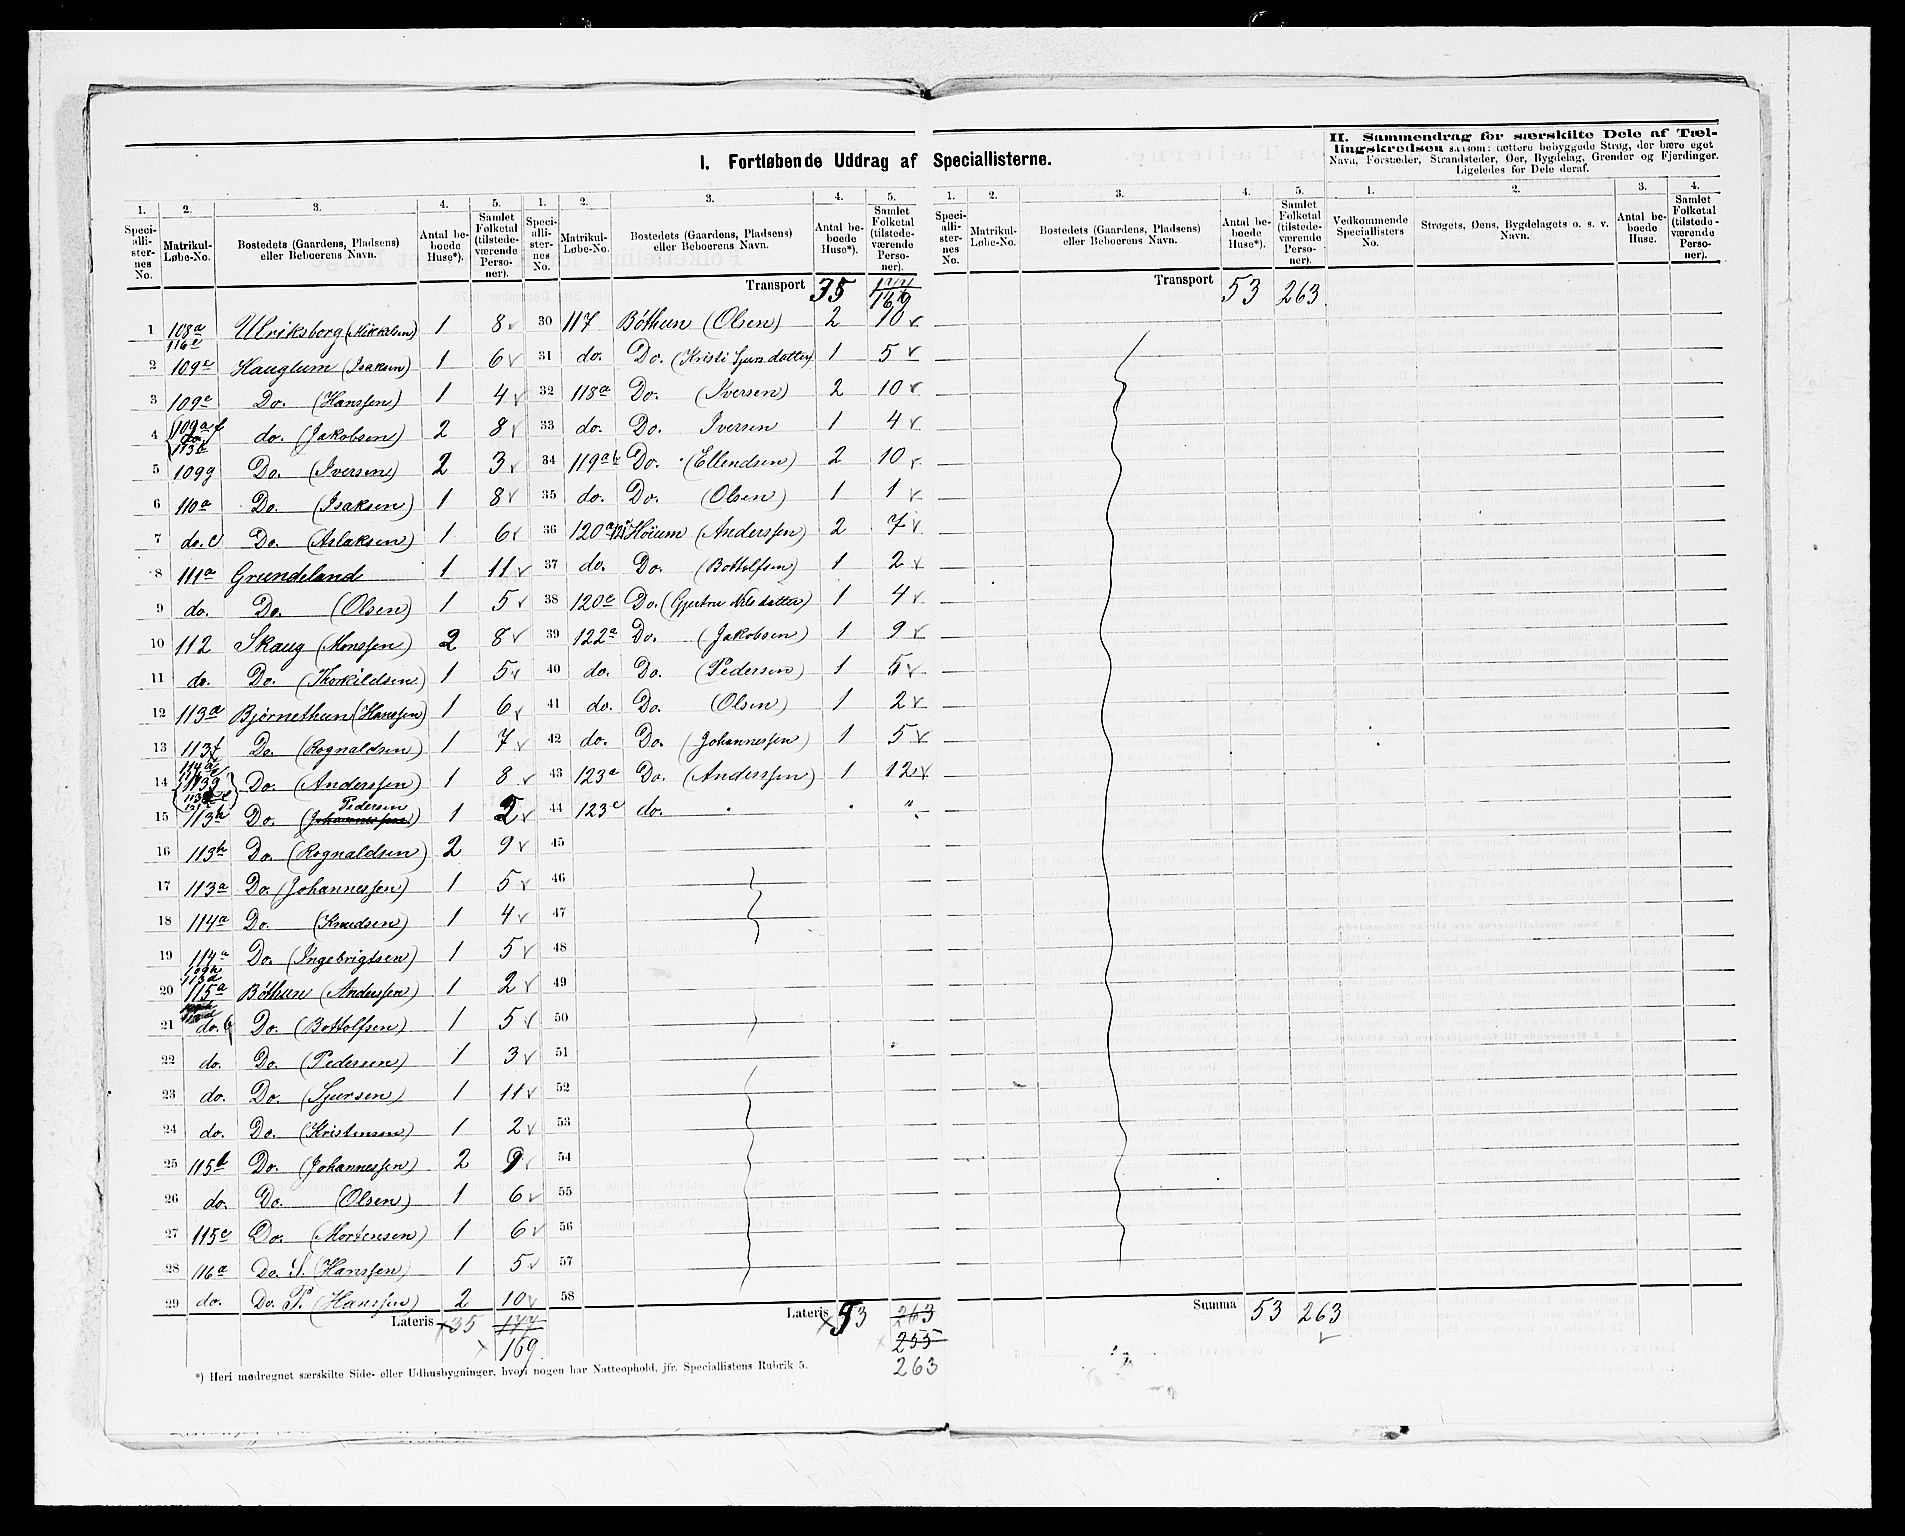 I. Fortløbende Uddrag af Speciallisterne.
II. Sammendrag for særskilte Dele af Tæl-
lingskredsen saasom: tættere bebyggede Strøg, der bære eget
Navn, Forstæder, Strandsteder, Øer, Bygdelag, Grender og Fjerdinger.
Ligeledes for Dele deraf.
1. 2. 3. 4. 5. 1. 2. 3. 4. 5. 1. 2. 3. 4. 5. 1. 2. 3. 4.
Speci-alli-ster-nes No. Matrikul-Løbe-No. Bostedets (Gaardens, Pladsens) eller Beboerens Navn. Antal be-boede Huse*). Samlet Folketal (tilstede-værende Perso-ner).
Speci-alli-ster-nes No. Matrikul-Løbe-No. Bostedets (Gaardens, Pladsens) eller Beboerens Navn. Antal be-boede Huse*). Samlet Folketal (tilstede-værende Perso-ner).
Speci-alli-ster-nes No. Matrikul-Løbe-No. Bostedets (Gaardens, Pladsens) eller Beboerens Navn. Antal be-boede Huse*). Samlet Folketal (tilstede-værende Perso-ner).
Vedkommende Speciallisters No. Strøgets, Øens, Bygdelagets o. s. v. Navn. Antal be-boede Huse. Samlet Folketal (tilstede-værende Perso-ner).
Transport 35 177 169
Transport 53 263
1 108a 116c Ulriksborg (Mikkelsen) 1 8
2 109c Hauglum (Isaksen) 1 6
3 109e Do. (Hanssen) 1 4
4 109a f do. 113b do. (Jakobsen) 2 8
5 109g Do. (Iversen) 2 3
6 110a Do. (Isaksen) 1 8
7 do. c Do. (Aslaksen) 1 6
8 111a Grundeland 1 11
9 do. Do. (Olsen) 1 5
10 112 Skaug (Monssen) 2 8
11 do. Do. (Thorkildsen) 1 5
12 113a Bjørnethun (Hanssen) 1 6
13 113f Do. (Rognaldsen) 1 7
14 113g Do. (Anderssen) 1 8
15 113h Do. (Johannessen) Pedersen 1 2
16 113h Do. (Rognaldsen) 2 9
17 113a Do. (Johannessen) 1 5
18 114a Do. (Knudsen) 1 4
19 114a Do. (Ingebrigtsen) 1 5
20 109h 113d 115a Bøthun (Anderssen) 1 2
21 do. b Do. (Bottolfsen) 1 5
22 do. Do. (Pedersen) 1 3
23 do. Do. (Sjursen) 1 11
24 do. Do. (Kristensen) 1 2
25 115b Do. (Johannessen) 2 9
26 do. Do. (Olsen) 1 6
27 115c Do. (Mortensen) 1 6
28 116a Do. S. (Hanssen) 1 5
29 do. Do. P. (Hanssen) 2 10
Lateris 35 177
169
30 117 Bøthun (Olsen) 2 10
31 do. Do. (Kristi Sjursdatter) 1 5
32 118a Do. (Iversen) 2 10
33 do. Do. Iversen 1 4
34 119a b Do. (Ellendsen) 2 10
35 do. Do. (Olsen) 1 1
36 120a 121 Høium (Anderssen) 2 7
37 do. Do. (Bottolfsen) 1 2
38 120c Do. (Gjertru Nilsdatter) 1 4
39 122a Do. (Jakobsen) 1 9
40 do. Do. (Pedersen) 1 5
41 do. Do. (Olsen) 1 2
42 do. Do. (Johannessen) 1 5
43 123a Do. (Anderssen) 1 12
44 123c do. . . "
45
46
47
48
49
50
51
52
53
54
55
56
57
58
Lateris 53 263
255
263
Summa 53 263
*) Heri medregnet særskilte Side- eller Udhusbygninger, hvori nogen har Natteophold, jfr. Speciallistens Rubrik 5.